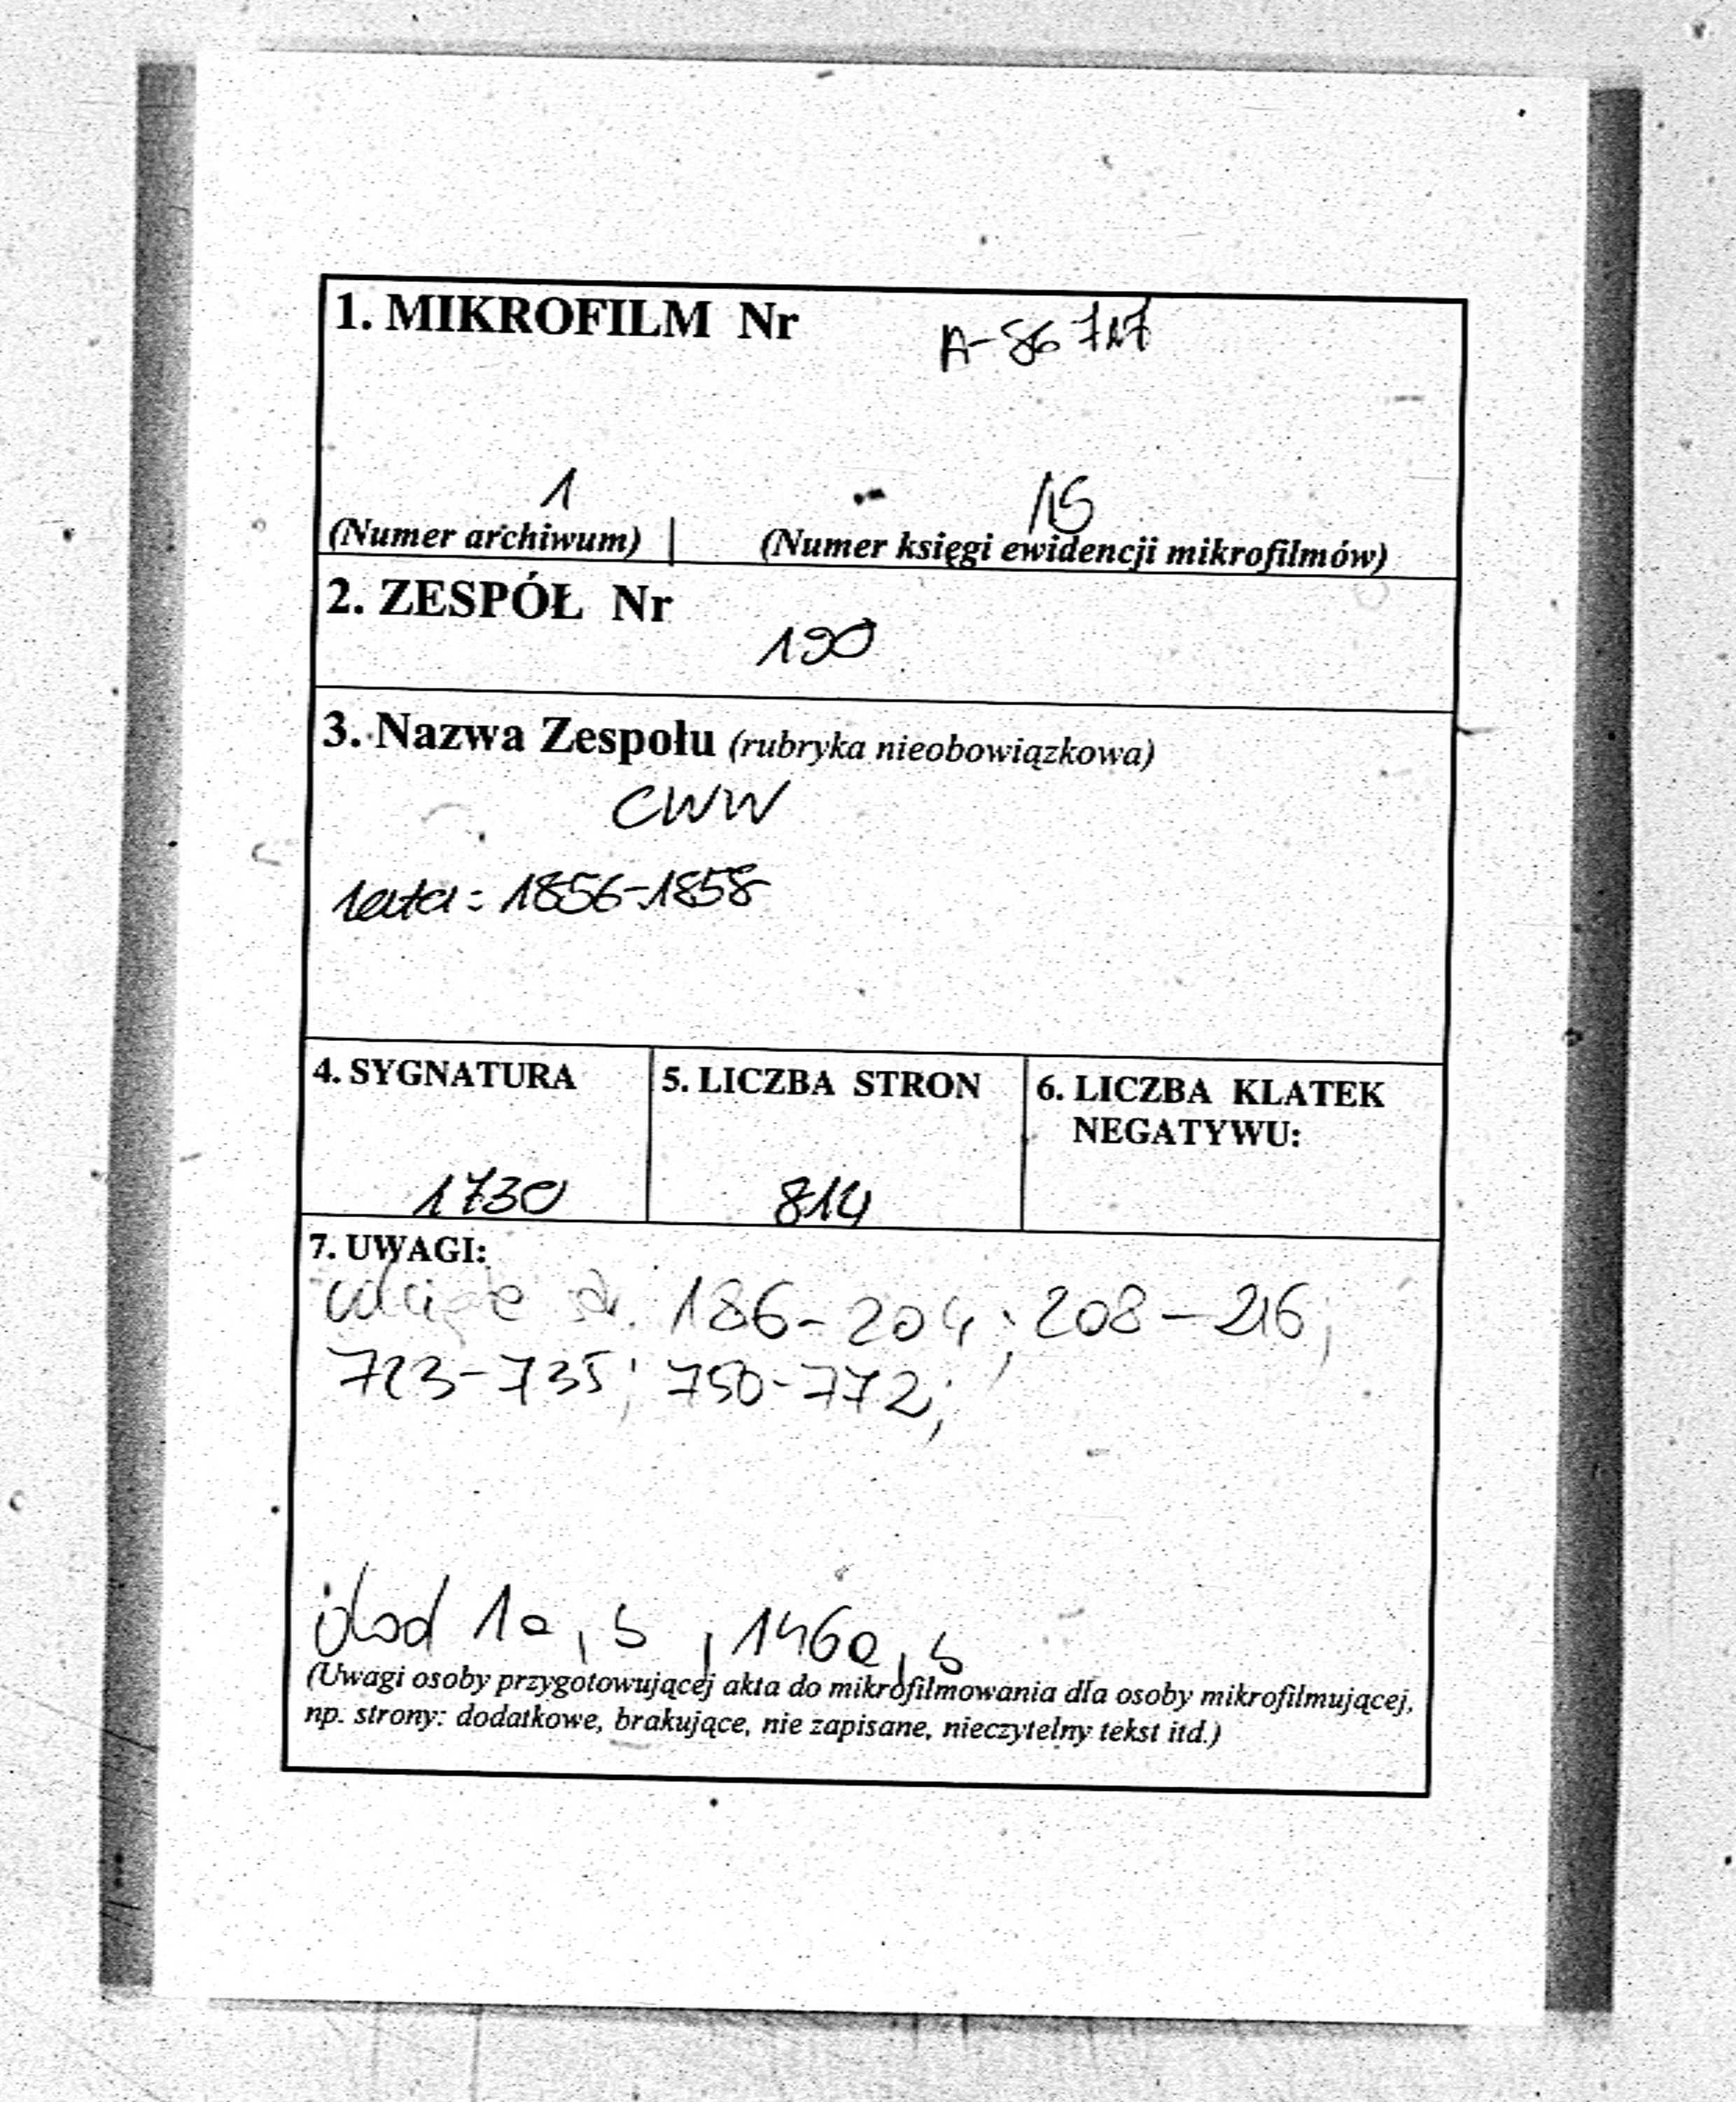 1. MIKROFILM Nr A-86 727
1 /15
(Numer archiwum) | (Numer księgi ewidencji mikrofilmów)
2. ZESPÓŁ Nr
190
3. Nazwa Zespołu (rubryka nieobowiązkowa)
CWW
lata: 1856-1858
4. SYGNATURA 5. LICZBA STRON 6. LICZBA KLATEK
NEGATYWU:
1730 814
7. UWAGI:
186-204; 208-216;
723-735; 750-772;
dod 1a, b, 146a, b
(Uwagi osoby przygotowującej akta do mikrofilmowania dla osoby mikrofilmującej,
np. strony: dodatkowe, brakujące, nie zapisane, nieczytelny tekst itd.)